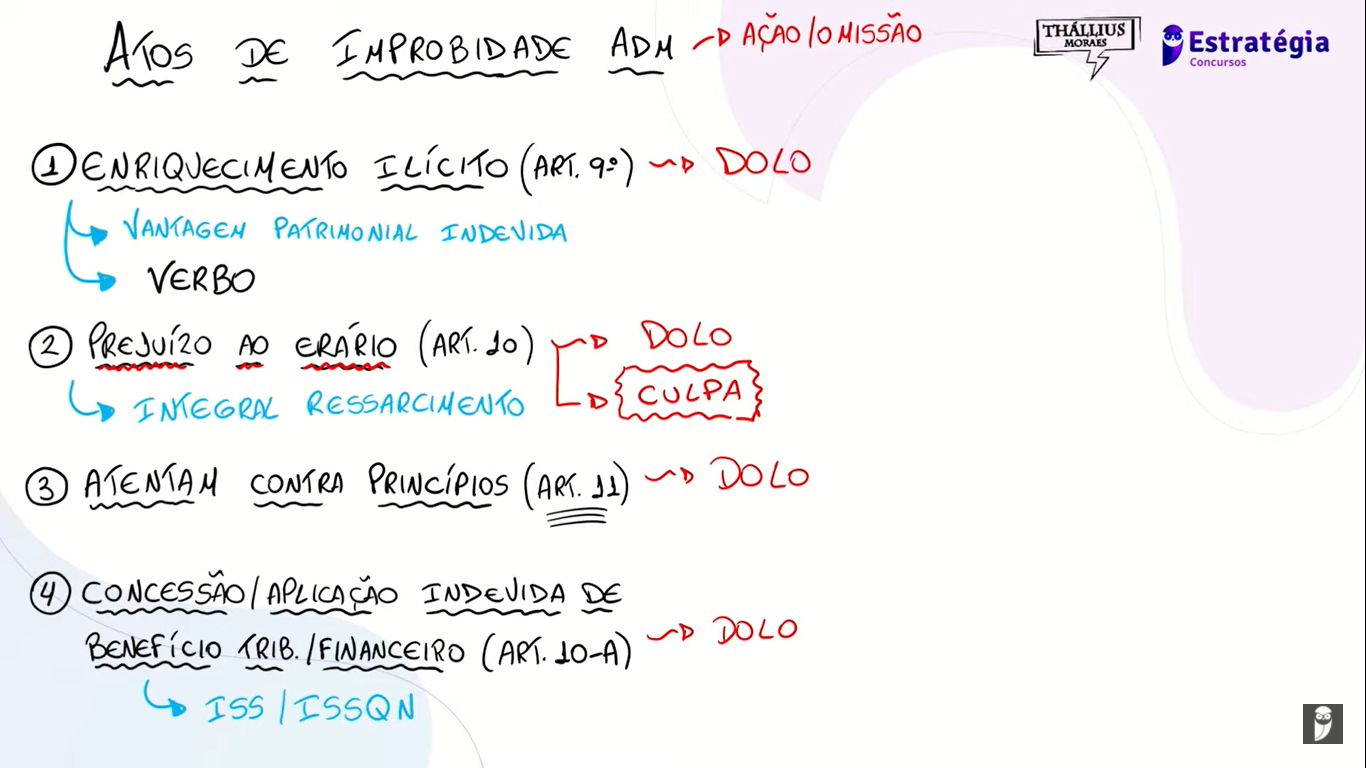 ATOS DE IMPROBIDADE ADM → AÇÃO/OMISSÃO
THÁLLIUS
MORAES
Estratégia
Concursos
1 ENRIQUECIMENTO ILÍCITO (ART. 9º) → DOLO
VANTAGEM PATRIMONIAL INDEVIDA
VERBO
2 PREJUÍZO AO ERÁRIO (ART. 10) → DOLO
→ CULPA
INTEGRAL RESSARCIMENTO
3 ATENTAM CONTRA PRINCÍPIOS (ART. 11) → DOLO
4 CONCESSÃO/APLICAÇÃO INDEVIDA DE
BENEFÍCIO TRIB./FINANCEIRO (ART. 10-A) → DOLO
ISS/ISSQN